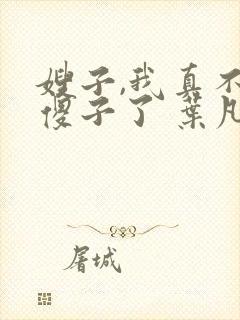 嫂子,我真不
傻子了 葉凡
屠城